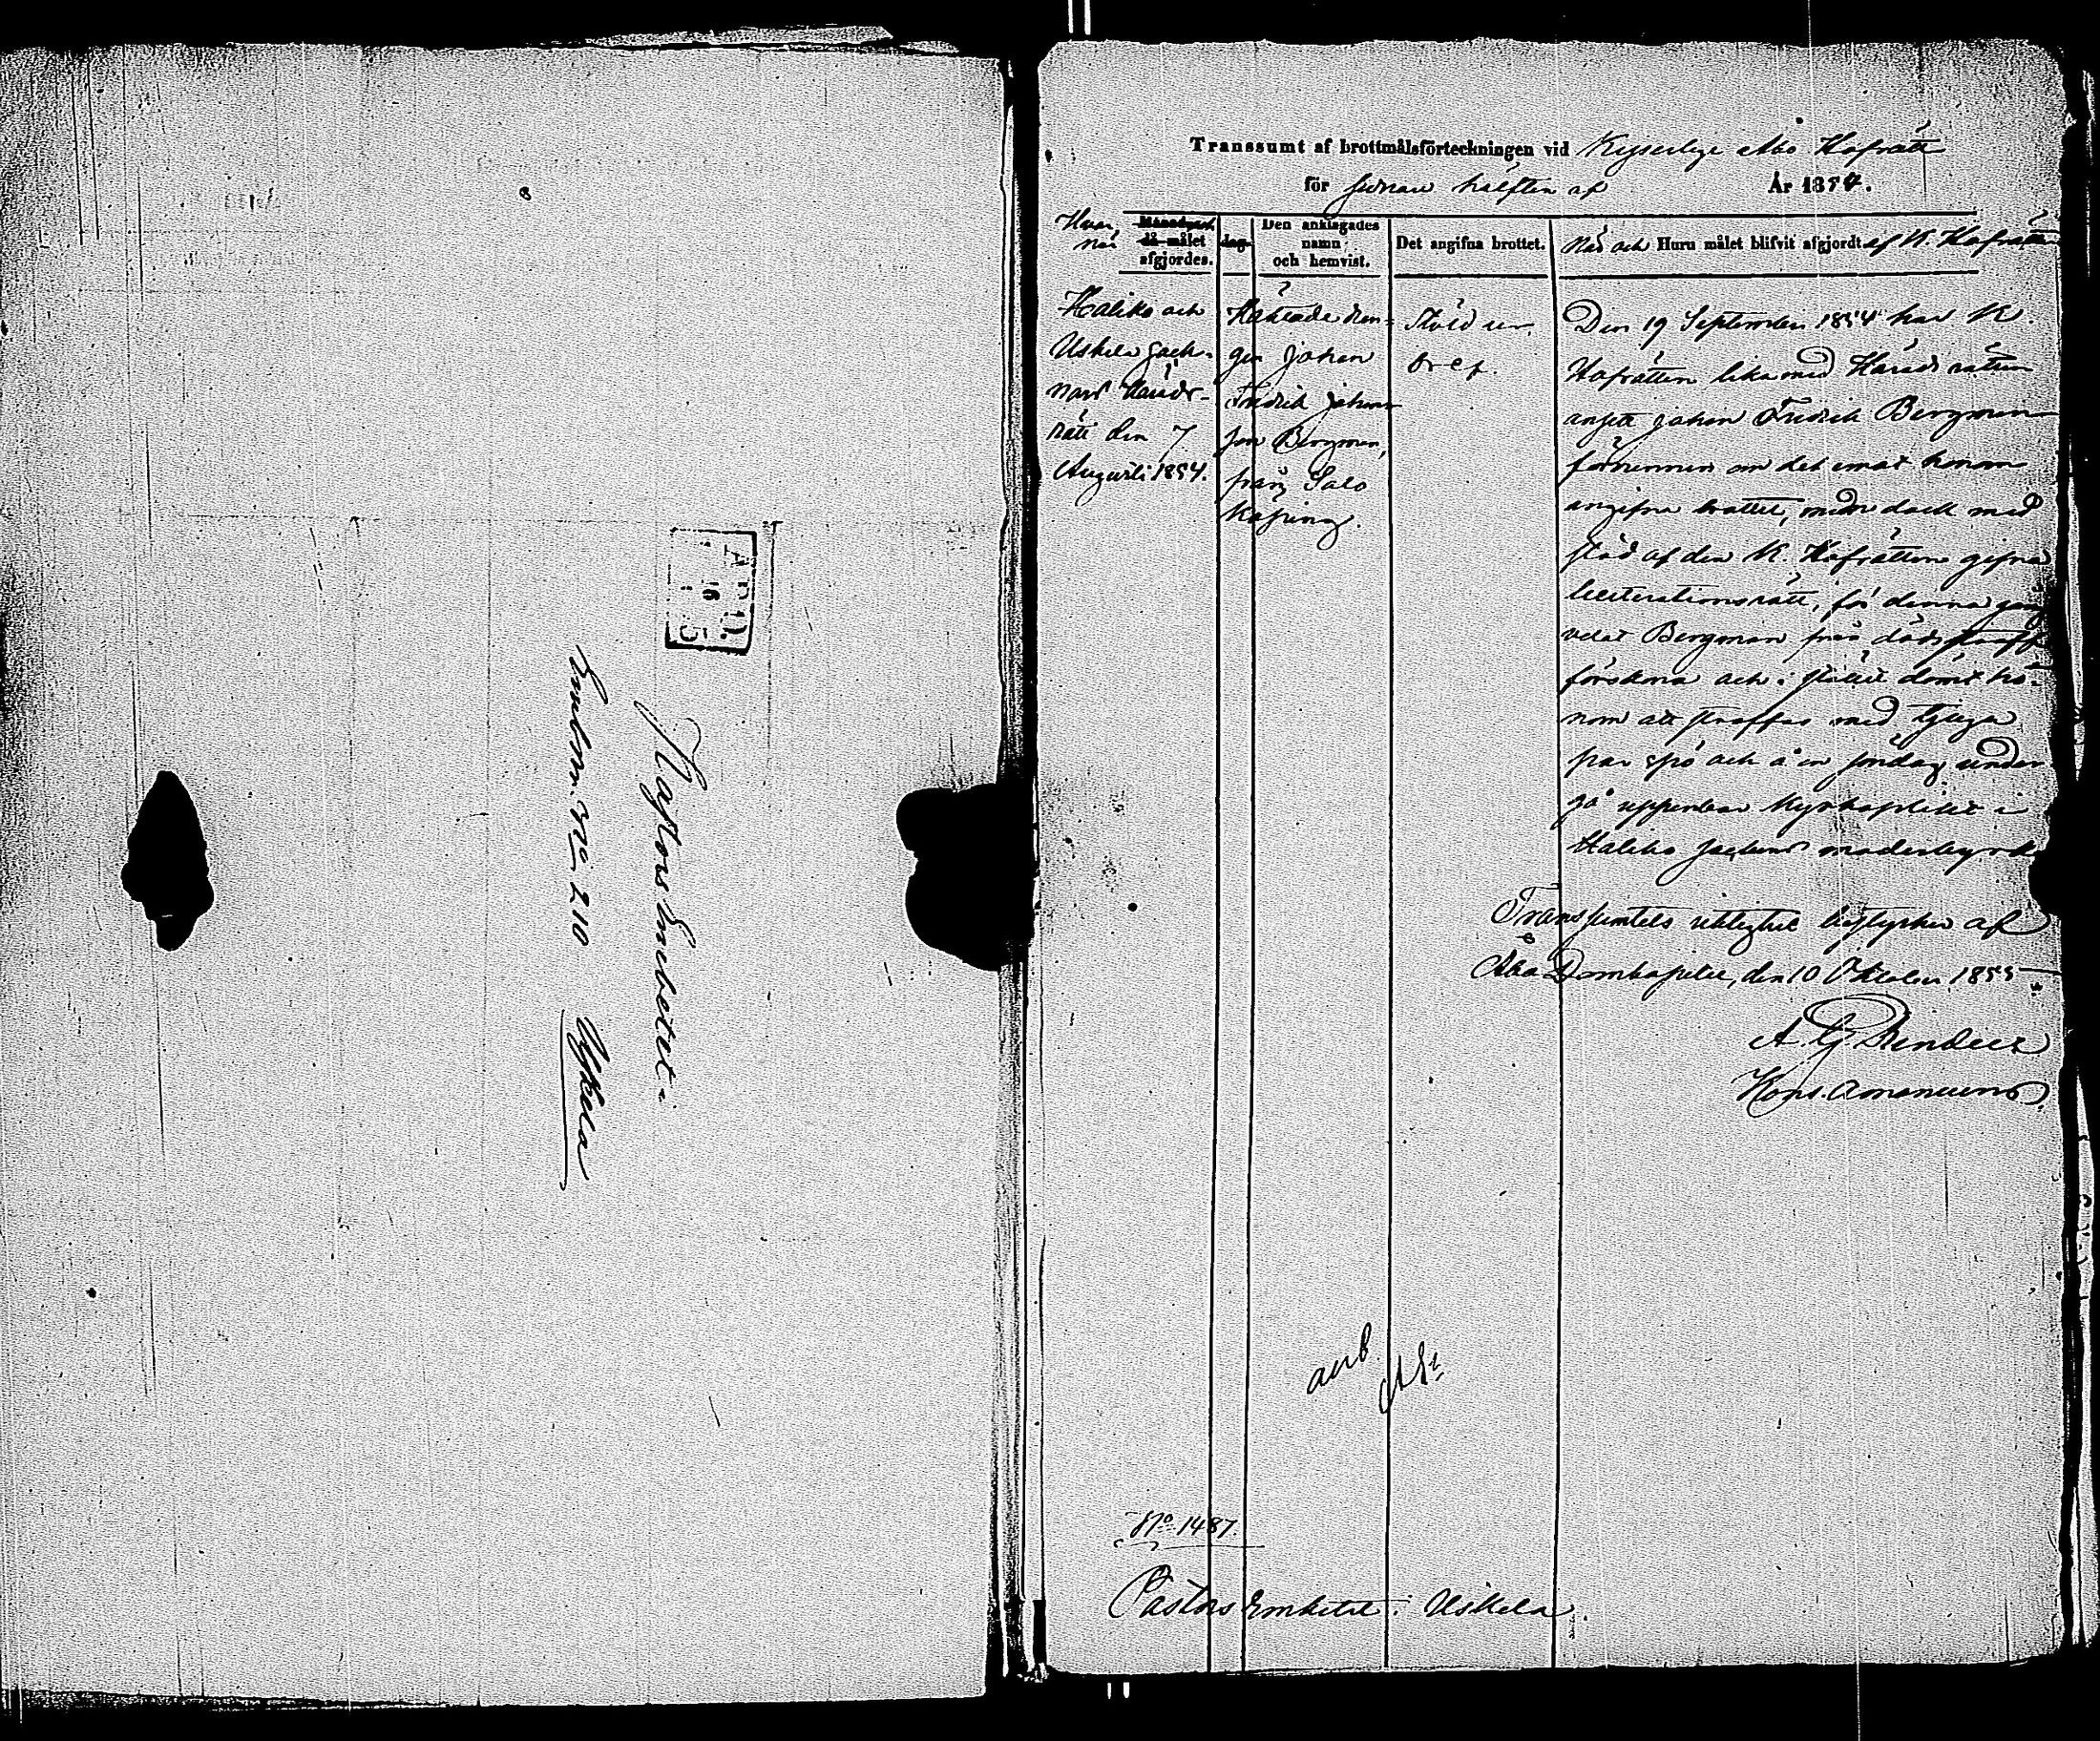 Pastors Embetet
Embetsm: No 210 Uskela
Transsumt af brottmålsförteckningen vid Kejserlige Åbo Hofrätt
för sednare hälften af År 1854.
Hvar, när målet afgjordes.
Månad och då dag.
Den anklagades namn och hemvist.
Det angifna brottet.
När och Huru målet blifvit afgjordt af K. Hofrätten
Haliko och
Uskela Sock-
nars Härads-
rätt den 7
Augusti 1854.
Häktade drän-
gen Johan
Fredrik Johans-
son Bergman,
från Salo
Köping.
Stöld
Den 19 September 1854 har K.
Hofrätten lika med Häradsrätten
ansett Johan Fredrik Bergman
förvunnen om det emot honom
angifna brottet, men dock med
stöd af den K. Hofrätten gifna
leuterationsrätt, för denna gång
velat Bergman från dödsstraff
förskona och i stället dömt ho-
nom att straffas med tjugu
par spö och å en söndag under-
gå uppenbar kyrkoplikt i
Haliko Sockens moderkyrka
Transsumtets riktighet bestyrker af
Åbo Domkapitel, den 10 Oktober 1855
A. G.
Kons. Amanuens.
anb.
No 1487.
Pastors Embetet i Uskela.